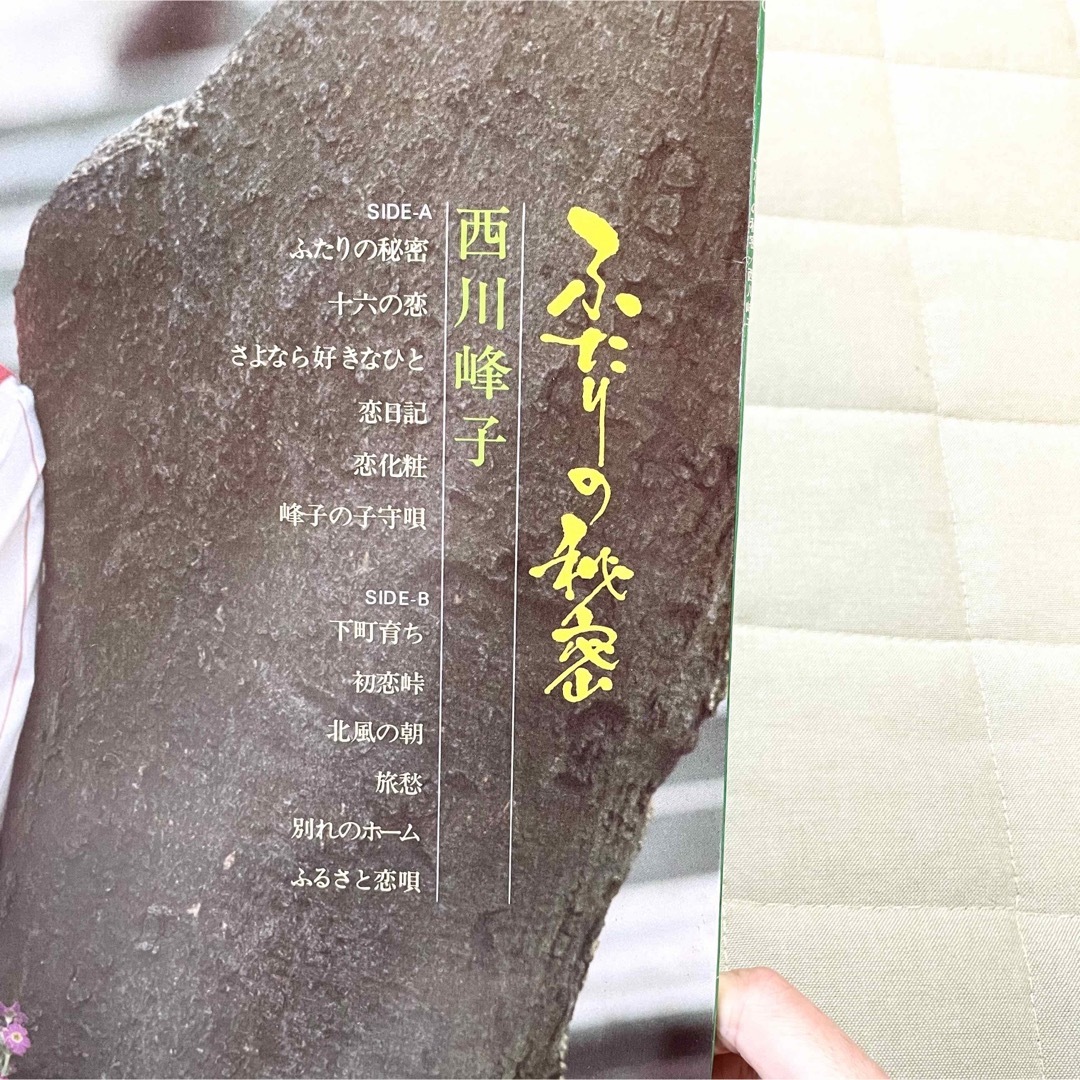 ふたりの秘密
西川峰子
SIDE-A
ふたりの秘密
十六の恋
さよなら好きなひと
恋日記
恋化粧
峰子の子守唄
SIDE-B
下町育ち
初恋峠
北風の朝
旅愁
別れのホーム
ふるさと恋唄